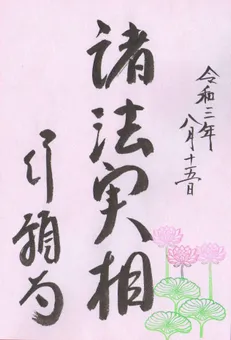 令和三年
八月十五日
諸法実相
行願為